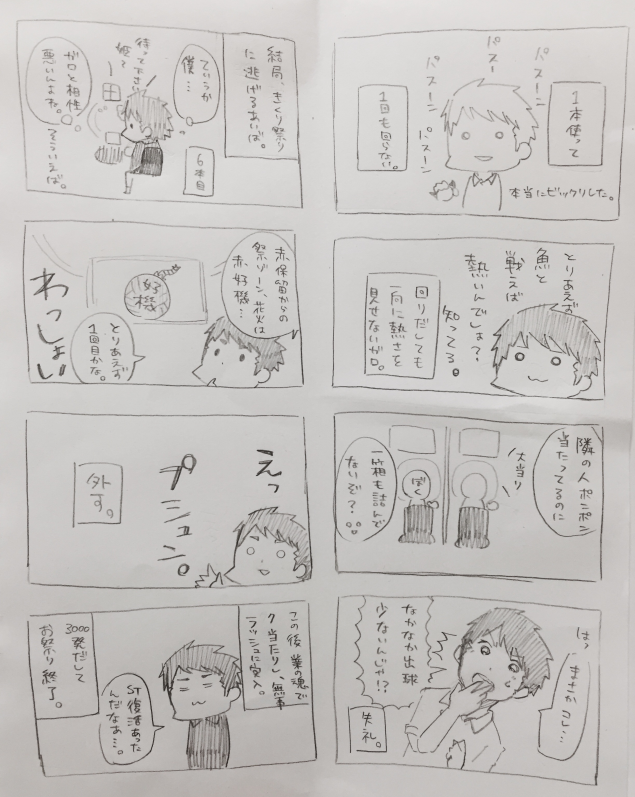 1本使って
パスーン
パスー
パスーン
パスーン
1回も回らない。
本当にビックリした。
とりあえず
魚と
戦えば
熱いんでしょ?
知ってる。
回りだしても
一向に熱さを
見せないガロ。
隣の人ポンポン
当たってるのに
大当り
ぼく
一箱も詰んで
ないぞ?
はっ
まさかコレ…
なかなか出球
少ないんじゃ!?
失礼。
結局、きくり祭り
に逃げるあいば。
6本目
ていうか
僕…
待って下さい
姫〜
ガロと相性
悪いんよね。
そういえば。
赤保留からの
祭ゾーン、花火は
赤好機…
好機
とりあえず
1回目かな。
わっしょい
えっ
プシュン。
外す。
この後業の魂で
7当たりし、無事
ラッシュに突入。
ST復活あった
んだなぁ…。
3000
発だして
お祭り終了。